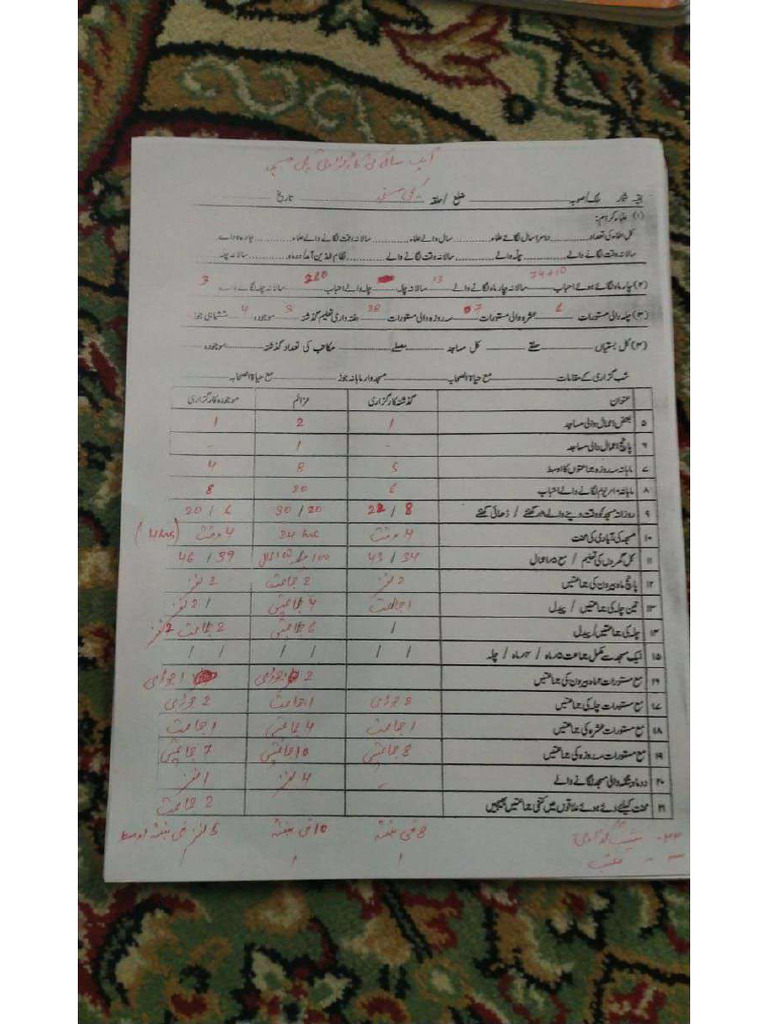 ایک سالہ کی کارگزاری مسجد
بقیہ شمار ملک/صوبہ ضلع/حلقہ تاریخ
(۱) علماء کرام:
کل علماء کی تعداد سال والے علماء سالانہ وقت لگانے والے علماء چار ماہ والے
سالانہ وقت لگانے والے چلہ والے سالانہ وقت لگانے والے سالانہ چلہ
(۲) چار ماہ لگائے ہوئے احباب 74+10 سالانہ چار ماہ لگانے والے 13 سالانہ چلہ چلہ والے احباب 210 سالانہ چلہ لگانے والے 3
(۳) چلہ والی مستورات 6 عشرہ والی مستورات 07 سہ روزہ والی مستورات 38 ہفتہ واری تعلیم گذشتہ 3 موجودہ 4 ششماہی جوڑ
(۴) کل بستیاں حلقے کل مساجد مصلے مکاتب کی تعداد گذشتہ موجودہ
شب گزاری کے مقامات مع حیاۃ الصحابہ مسجدوار ماہانہ جوڑ مع حیاۃ الصحابہ
عنوان گذشتہ کارگزاری عزائم موجودہ کارگزاری
۵ بعض اعمال والی مساجد 1 2 1
۶ پانچ اعمال والی مساجد - 1 -
۷ ماہانہ سہ روزہ جماعتوں کا اوسط 5 8 4
۸ ماہانہ ۱۰ یوم لگانے والے احباب 6 20 8
۹ روزانہ مسجد کو وقت دینے والے ۸ گھنٹے / ڈھائی گھنٹے 22/8 30/20 20/6
۱۰ مسجد کی آبادی کی محنت 4 وقت 24 hrs 4 وقت (4 hrs)
۱۱ کل گھروں کی تعلیم / مع ۵ اعمال 43/34 46/39
۱۲ پانچ ماہ بیرون کی جماعتیں 2 نفر 2 جماعت 2 نفر
۱۳ تین چلہ کی جماعتیں / پیدل 1 جماعت 4 جماعتیں 1 2 نفر
۱۴ چلہ کی جماعتیں / پیدل 1 6 جماعتیں 2 جماعت 2 نفر
۱۵ ایک مسجد سے مکمل جماعت ۵ ماہ / ۴ ماہ / چلہ 1 1 1 1 1 1
۱۶ مع مستورات ۲ ماہ بیرون کی جماعتیں 2 جوڑی 1 جوڑی
۱۷ مع مستورات چلہ کی جماعتیں 2 جوڑی 1 جماعت 2 جوڑی
۱۸ مع مستورات عشرہ کی جماعتیں 1 جماعت 4 جماعتیں 1 جماعت
۱۹ مع مستورات سہ روزہ کی جماعتیں 8 جماعتیں 10 جماعتیں 7 جماعتیں
۲۰ دو ماہ بنگلہ والی مسجد لگانے والے - 4 نفر 1 نفر
۲۱ محنت کیلئے دئے ہوئے علاقوں میں کتنی جماعتیں بھیجیں 2 جماعت
۲۲ شب گذاری 8 فی ہفتہ 10 فی ہفتہ 5 نفر فی ہفتہ اوسط
1 1